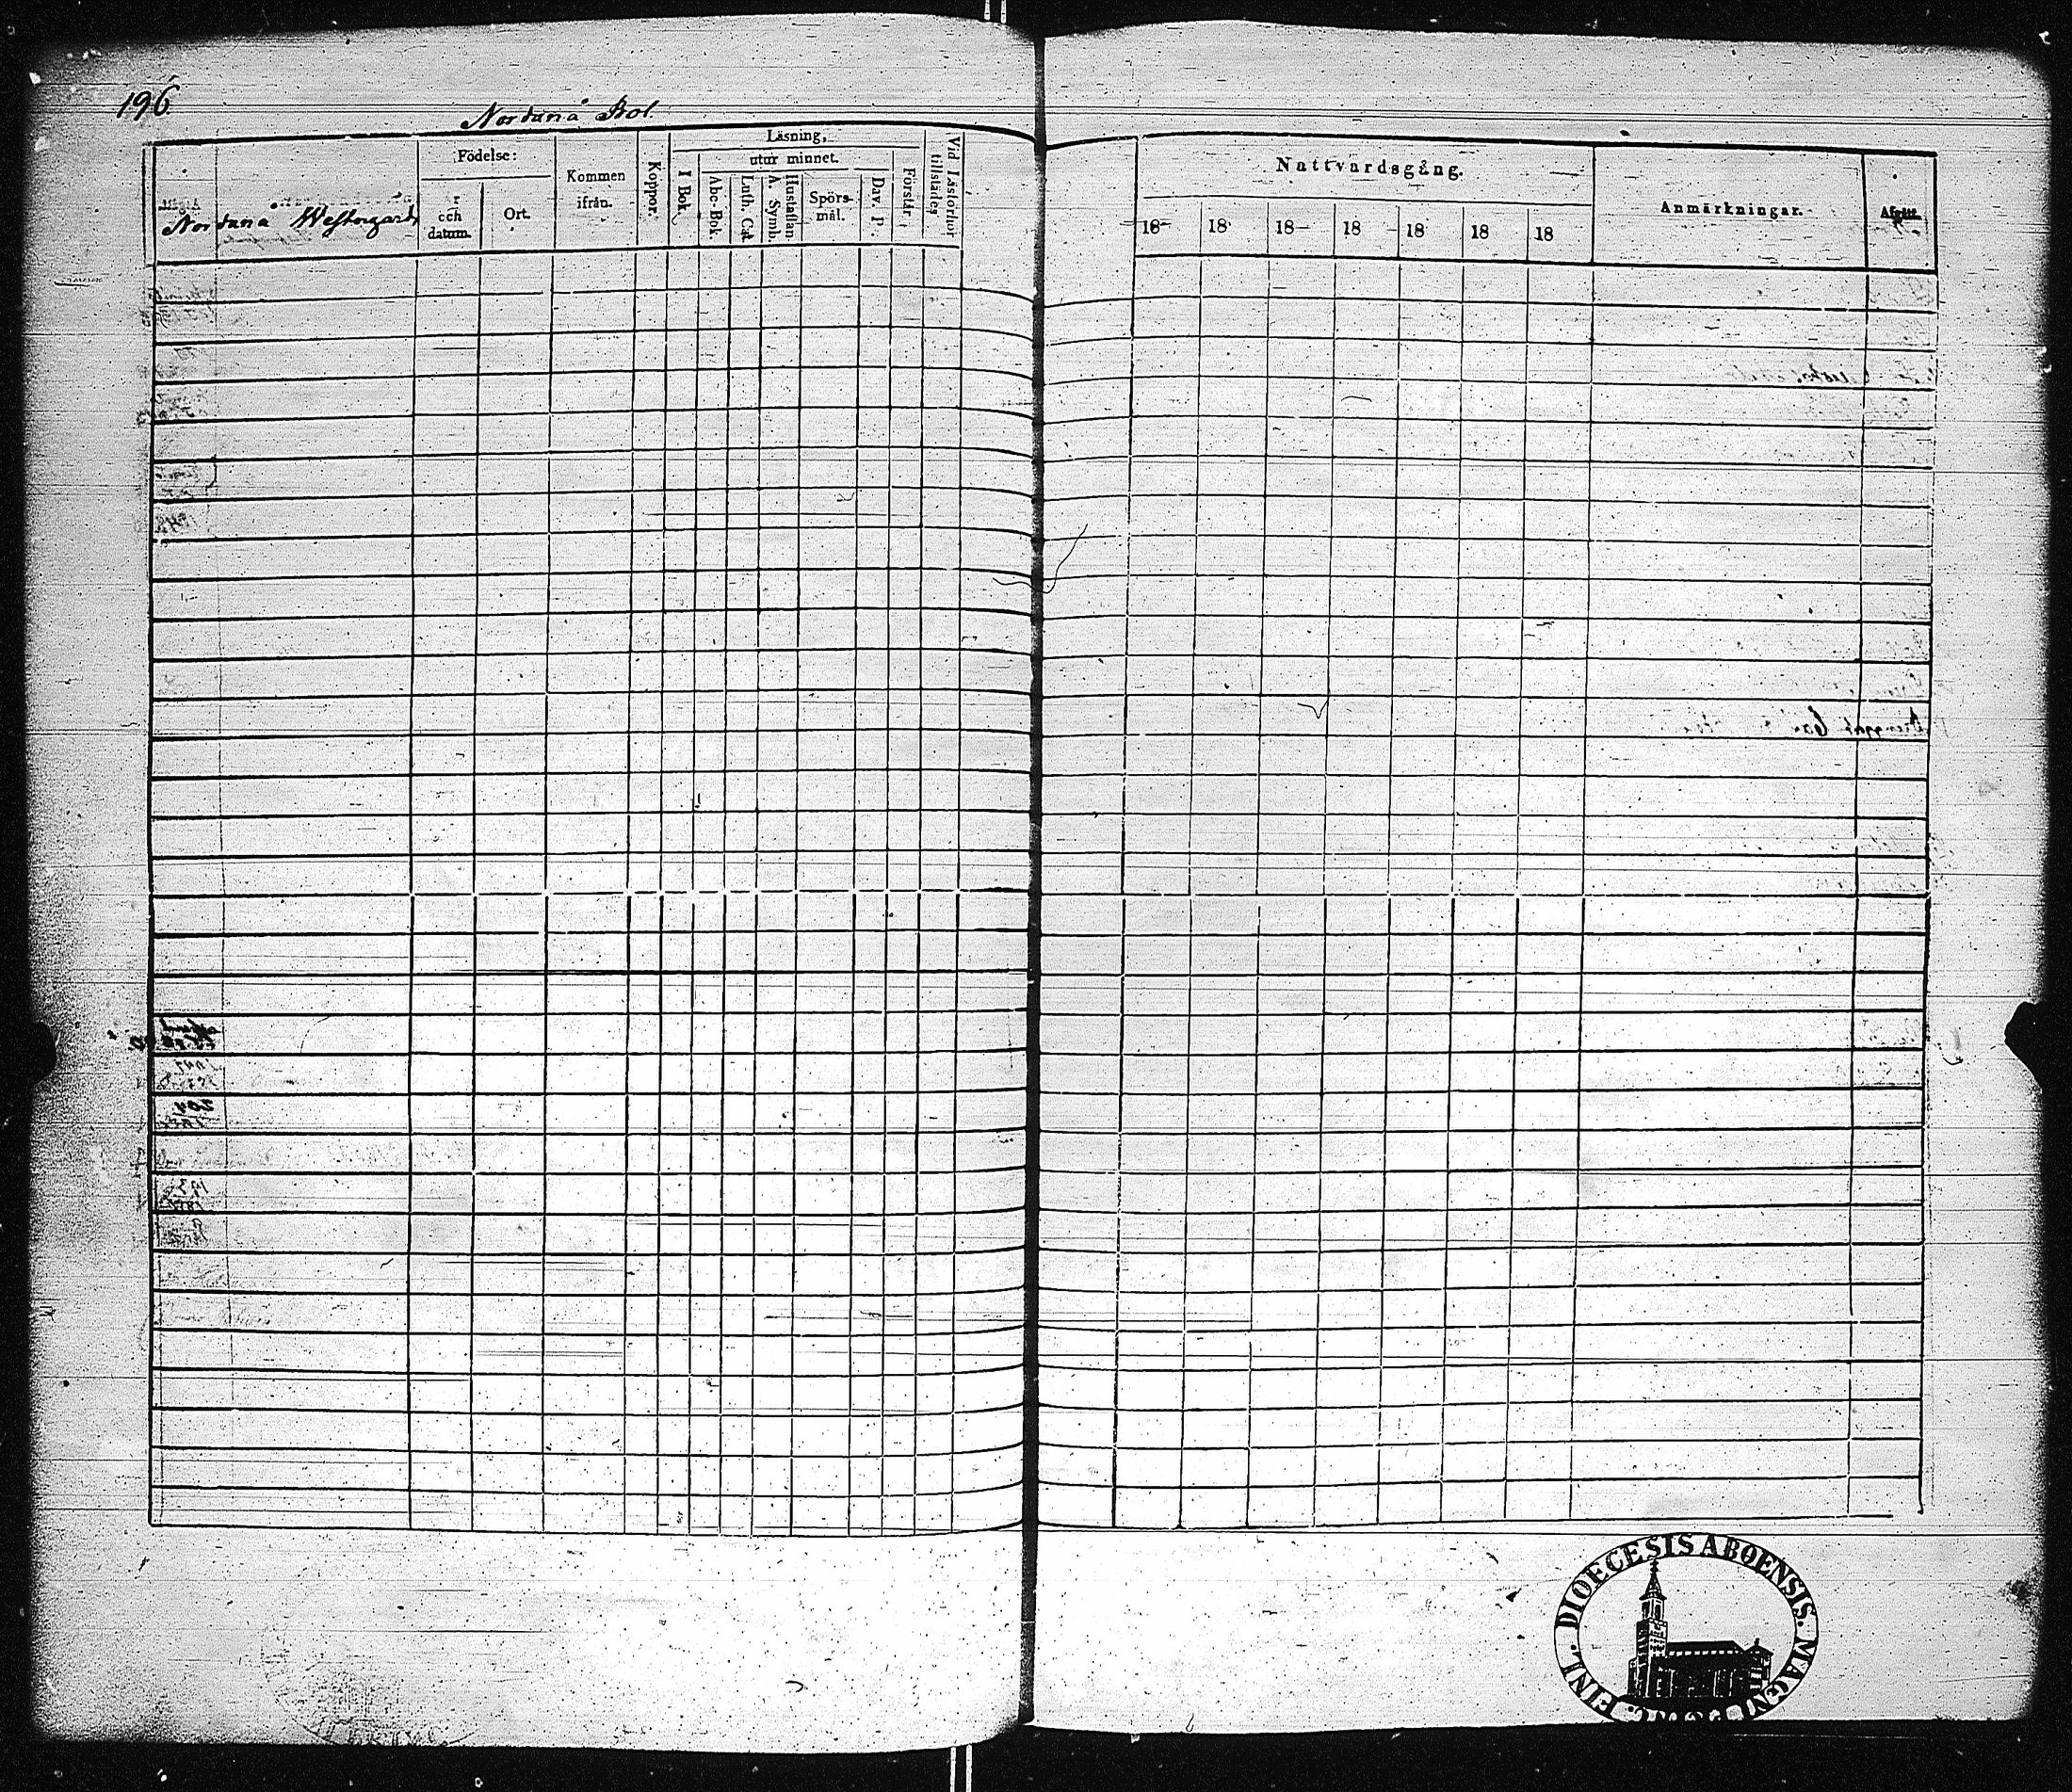 196
Nordanå Bol.
Nordanå Westergård
Födelse:
och datum.
Ort.
Kommen ifrån.
Koppor.
Läsning,
I Bok.
utur minnet.
Abc-Bok.
Luth. Cat.
A. Symb.
Hustaflan
Spörs-mål.
Dav. P.
Förstår
Vid Läsförhör tillstädes
Nattvardsgång.
18 18 18 18 18 18 18
Anmärkningar.
Afgått.
DIOECESIS ABOENSIS. MAGNI DUC. FINL.